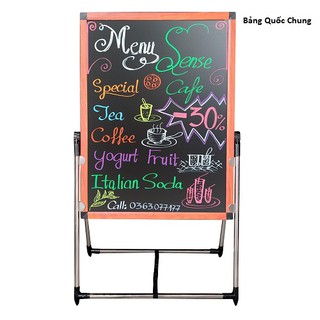 Bảng Quốc Chung
Menu Sense
Special Cafe
Tea
-30%
Coffee
Yogurt Fruit
Italian Soda
Call: 0363077177